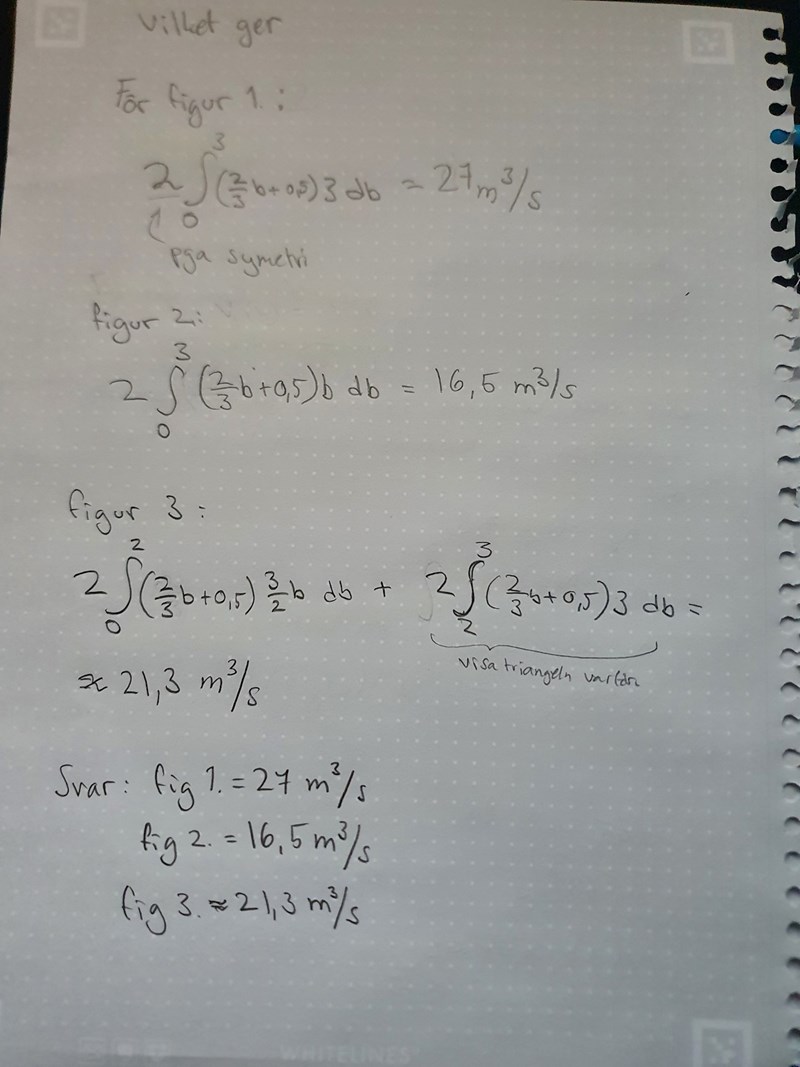 Vilket ger
För figur 1.:
2 ∫₀³ (2/3 b+0,5) 3 db = 27 m³/s
pga symetri
figur 2:
2 ∫₀³ (2/3 b+0,5) b db = 16,5 m³/s
figur 3:
2 ∫₀² (2/3 b+0,5) 3/2 b db + 2 ∫₂³ (2/3 b+0,5) 3 db =
visa triangeln varför
≈ 21,3 m³/s
Svar: fig 1. = 27 m³/s
fig 2. = 16,5 m³/s
fig 3. ≈ 21,3 m³/s
WHITELINES